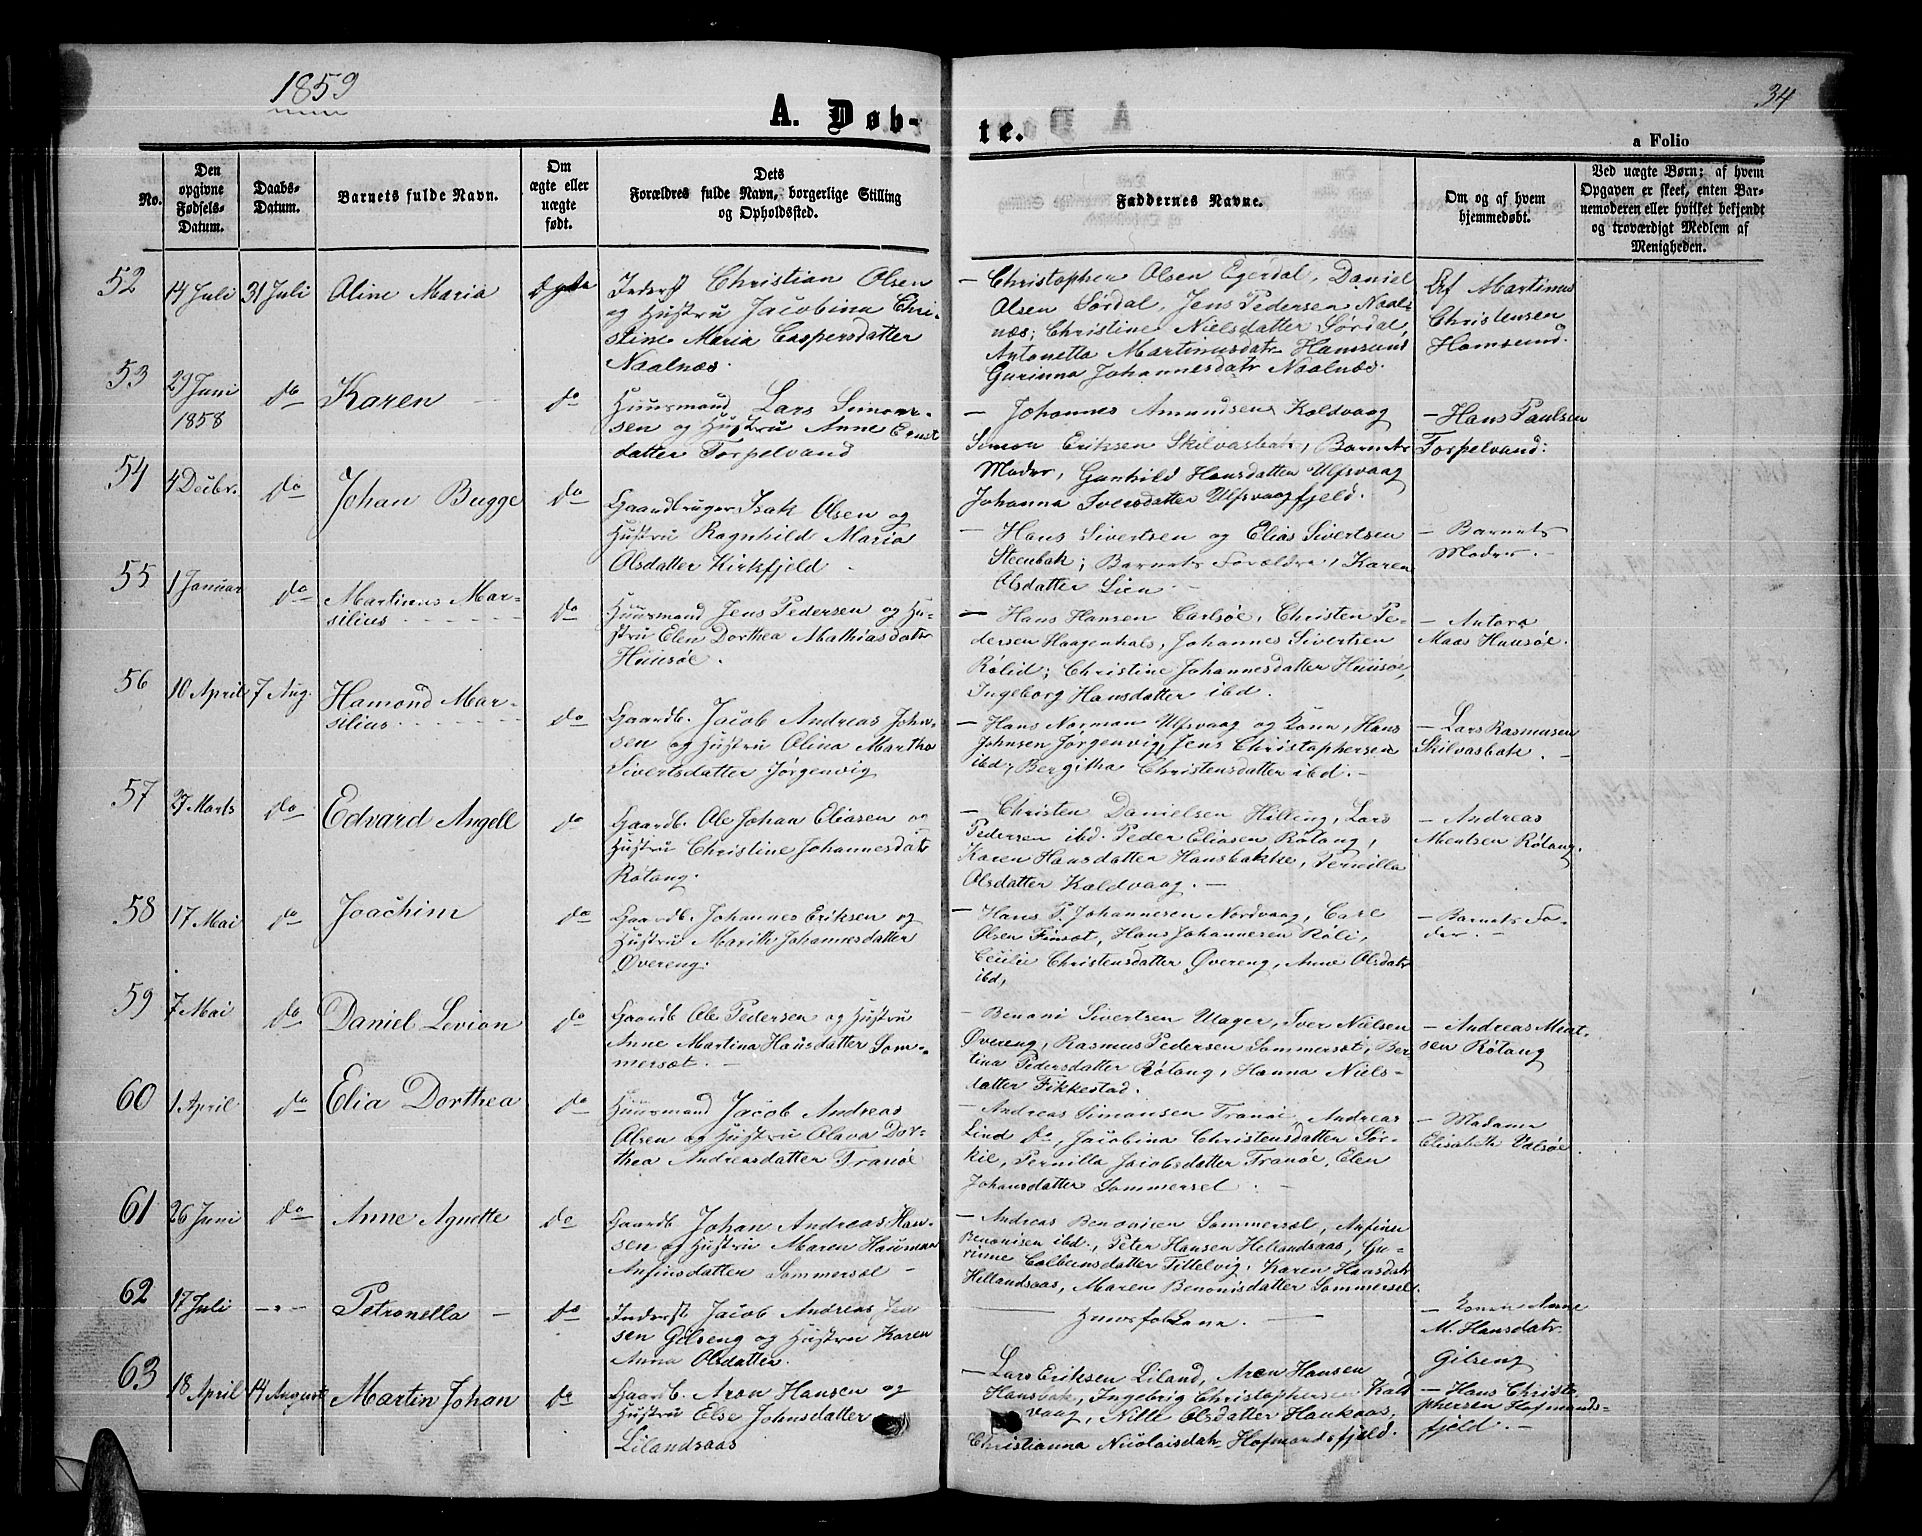 1859
34
A. Døb-
te.
a Folio
No.
Den opgivne Fødsels-Datum.
Daabs-Datum.
Barnets fulde Navn.
Om ægte eller uægte født.
Dets Forældres fulde Navn, borgerlige Stilling og Opholdssted.
Faddernes Navne.
Om og af hvem hjemmedøbt.
Ved uægte Børn; af hvem Opgaven er skeet, enten Barnemoderen eller hvilket bekjendt og troværdigt Medlem af Menigheden.
52
14 Juli
31 Juli
Oline Maria
Inderst Christian Olsen
og Hustru Jacobina Chri-
stine Maria Caspersdatter
Naalnæs.
— Christopher Olsen Egerdal, Daniel
Olsen Sørdal, Jens Pedersen Naal-
næs; Christine Nielsdatter Sørdal,
Antonetta Martinusdatr Hamsund
Gurinna Johannesdatr Naalnæs.
Af Martinus
Christensen
Hamsund.
53
29 Juni
1858
do
Karen
do
Huusmand Lars Simon-
sen og Hustru Anne Ernst
datter Torpelvand
— Johannes Amundsen Kaldvaag
Simon Eriksen Skilvasbak, Barnets
Moder, Gunhild Hansdatter Ulfsvaag
Johanna Iversdatter Ulfsvaagfjeld.
— Hans Paulsen
Torpelvand:
54
4 Decbr.
do
Johan Bugge
do
Gaardbruger Isak Olsen og
Hustru Ragnhild Maria
Olsdatter Kirkfjeld
— Hans Sivertsen og Elias Sivertsen
Steenbak; Barnets Forældre, Karen
Olsdatter Lien —
— Barnets
Moder. —
55
1 Januar
do
Martinus Mar-
silius
do
Huusmand Jens Pedersen og Hu-
stru Elen Dorthea Mathiasdatr
Huusøe.
— Hans Hansen Carlsøe, Christen Pe-
dersen Haagenhals, Johannes Sivertsen
Rølid; Christine Johannesdatter Huusøe,
Ingeborg Hansdatter ibd.
— Antora
Maas Huusøe.
56
10 April
7 Aug.
Hamond Mar-
silius
do
Gaardb. Jacob Andreas John-
sen og Hustru Olina Martha
Sivertsdatter Jørgenvig
— Hans Norman Ulfsvaag og Kone, Hans
Johnsen Jørgenvig, Jens Christophersen
ibd, Bergitha Christensdatter ibd. —
— Lars Rasmusen
Skilvasbak.
57
27 Marts
do
Edvard Angell
do
Gaardb. Ole Johan Eliasen og
Hustru Christine Johannesdatr
Røtang.
— Christen Danielsen Hilling, Lars
Pedersen ibd. Peder Eliasen Røtang,
Karen Hansdatter Hansbakke, Pernilla
Olsdatter Kaldvaag. —
— Andreas
Mentsen Røtang.
58
17 Mai
do
Joachim
do
Gaardb. Johannes Eriksen og
Hustru Marith Johannesdatter
Øvereng.
— Hans P. Johannesen Nordvaag, Carl
Olsen Finsæt, Hans Johannesen Røli,
Cecilie Christensdatter Øvereng, Anne Olsdatr
ibd,
— Barnets Fa-
der. —
59
7 Mai
do
Daniel Levion
do
Gaardb Ole Pedersen og Hustru
Anne Martina Hansdatter Som-
mersæt. —
— Benoni Sivertsen Ulager, Iver Nielsen
Øvereng, Rasmus Pedersen Sommersæt, Ber-
tina Pedersdatter Røtang, Hanna Niels-
datter Fikkestad.
— Andreas Ment-
sen Røtang
60
1 April
do
Elia Dorthea
do
Huusmand Jacob Andreas
Olsen og Hustru Olava Dor-
thea Andreasdatter Tranøe
— Andreas Simonsen Tranøe, Andreas
Lind do, Jacobina Christensdatter Sør-
kil, Pernilla Jacobsdatter Tranøe, Elen
Johansdatter Sommersel.
— Madame
Elisabeth Valsøe.
61
26 Juni
do
Anne Agnette
do
Gaardb Johan Andreas Han-
sen og Hustru Maren Hauman
Anfinsdatter Sommersæl —
— Andreas Benonisen Sommersæl, Anfinn
Benonisen ibd., Peter Hansen Hellandsaas, Gu-
rinne Colbensdatter Tittelvig, Karen Hansdatr
Hellandsaas, Maren Benonisdatter Sommersel.
62
17 Juli
— " —
Petronella —
do
Inderst Jacob Andreas Jen
sen Gilseng og Hustru Karen
Anna Olsdatter.
— Konen Anne
M. Hansdatr.
Gilseng
63
18 April
14 August
Martin Johan
do
Gaardb. Aron Hansen og
Hustru Else Johnsdatter
Lilandsaas
— Lars Eriksen Liland, Aron Hansen
Hansbak, Ingebrig Christophersen Kald
vaag, Nille Olsdatter Haukaas,
Christianna Nicolaisdatr Hofmandsfjeld.
— Hans Christo
phersen Hofmands-
fjeld. —